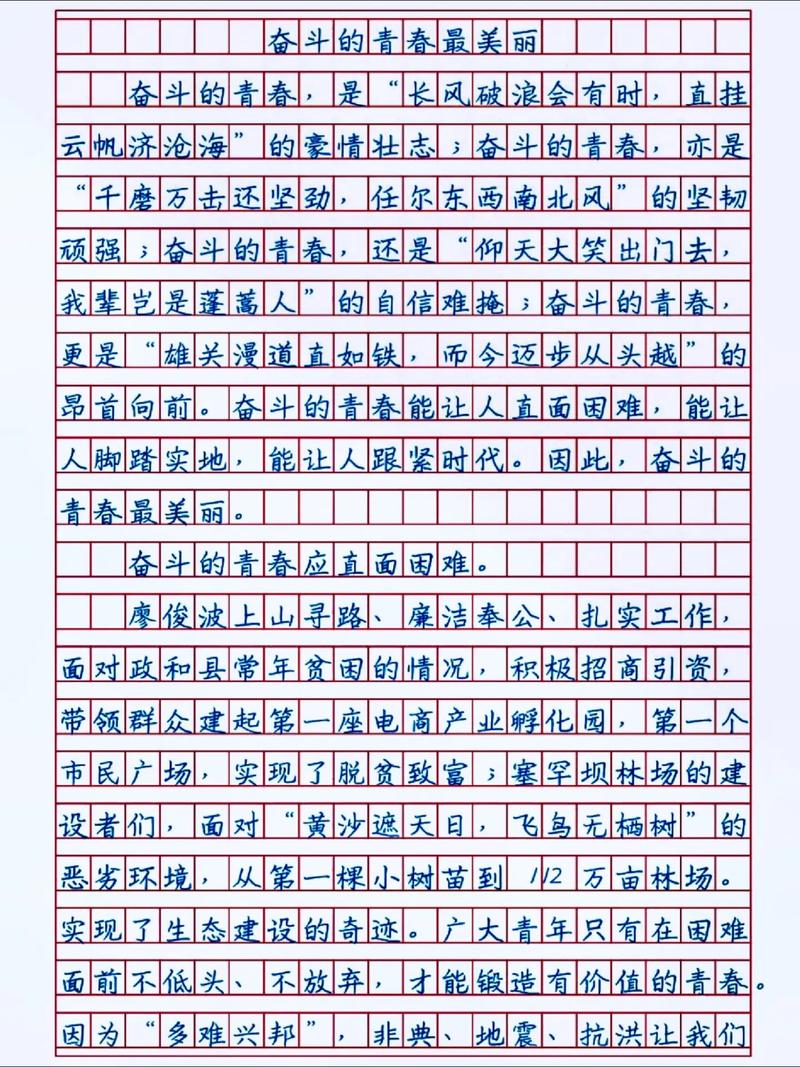 奋斗的青春最美丽
奋斗的青春，是“长风破浪会有时，直挂
云帆济沧海”的豪情壮志；奋斗的青春，亦是
“千磨万击还坚劲，任尔东西南北风”的坚韧
顽强；奋斗的青春，还是“仰天大笑出门去，
我辈岂是蓬蒿人”的自信难掩；奋斗的青春，
更是“雄关漫道直如铁，而今迈步从头越”的
昂首向前。奋斗的青春能让人直面困难，能让
人脚踏实地，能让人跟紧时代。因此，奋斗的
青春最美丽。
奋斗的青春应直面困难。
廖俊波上山寻路、廉洁奉公、扎实工作，
面对政和县常年贫困的情况，积极招商引资，
带领群众建起第一座电商产业孵化园，第一个
市民广场，实现了脱贫致富；塞罕坝林场的建
设者们，面对“黄沙遮天日，飞鸟无栖树”的
恶劣环境，从第一棵小树苗到112万亩林场。
实现了生态建设的奇迹。广大青年只有在困难
面前不低头、不放弃，才能锻造有价值的青春。
因为“多难兴邦”，非典、地震、抗洪让我们